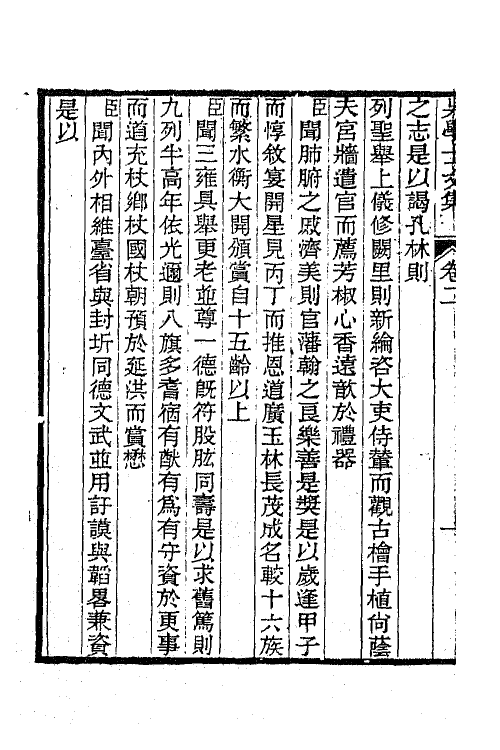 吳學士文集　卷二
之志是以謁孔林則
列聖舉上儀修闕里則新綸咨大吏侍輦而觀古檜手植尙蔭
天宮牆遣官而薦芳椒心香遠歆於禮器
臣聞肺腑之戚濟美則官藩翰之良樂善是獎是以歲逢甲子
而惇敘宴開星見丙丁而推恩道廣玉林長茂成名較十六族
而繁水衡大開頒賞自十五齡以上
臣聞三雍具舉更老並尊一德旣符股肱同壽是以求舊篤則
九列半高年依光邇則八旗多耆宿有猷有爲有守資於更事
而道充杖鄉杖國杖朝預於延洪而賞懋
臣聞內外相維臺省與封圻同德文武並用訏謨與韜畧兼資
是以